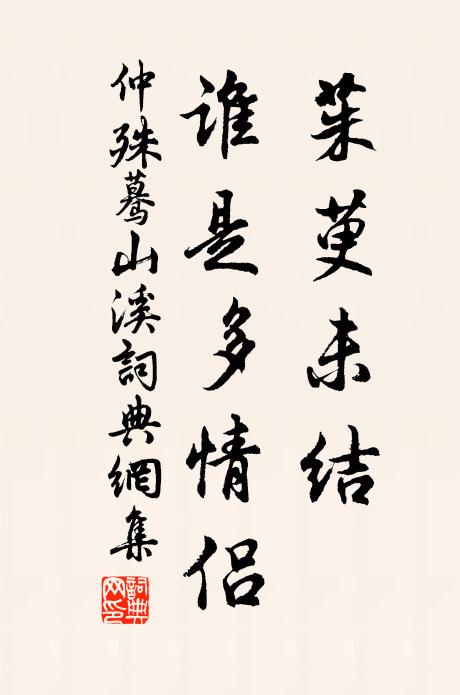 茱萸未结
谁是多情侣
仲殊蓦山溪詞典網集
詞典網印